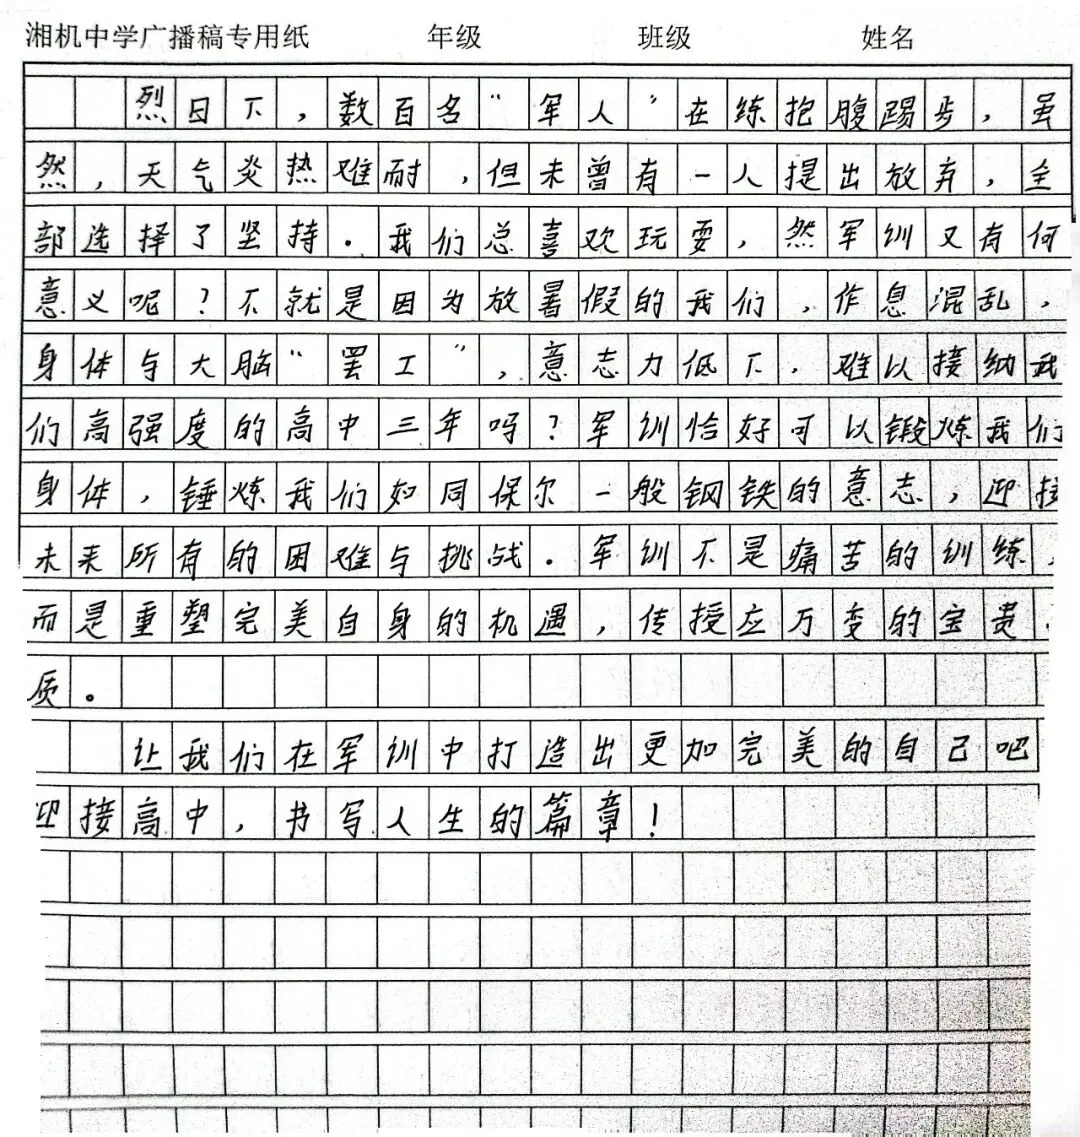 湘机中学广播稿专用纸 年级 班级 姓名
烈日下，数百名“军人”在练抱腹踢步，虽
然，天气炎热难耐，但未曾有一人提出放弃，全
部选择了坚持。我们总喜欢玩耍，然军训又有何
意义呢？不就是因为放暑假的我们，作息混乱，
身体与大脑“罢工”，意志力低下，难以接纳我
们高强度的高中三年吗？军训恰好可以锻炼我们
身体，锤炼我们如同保尔一般钢铁的意志，迎接
未来所有的困难与挑战。军训不是痛苦的训练，
而是重塑完美自身的机遇，传授应万变的宝贵
质。
让我们在军训中打造出更加完美的自己吧
迎接高中，书写人生的篇章！